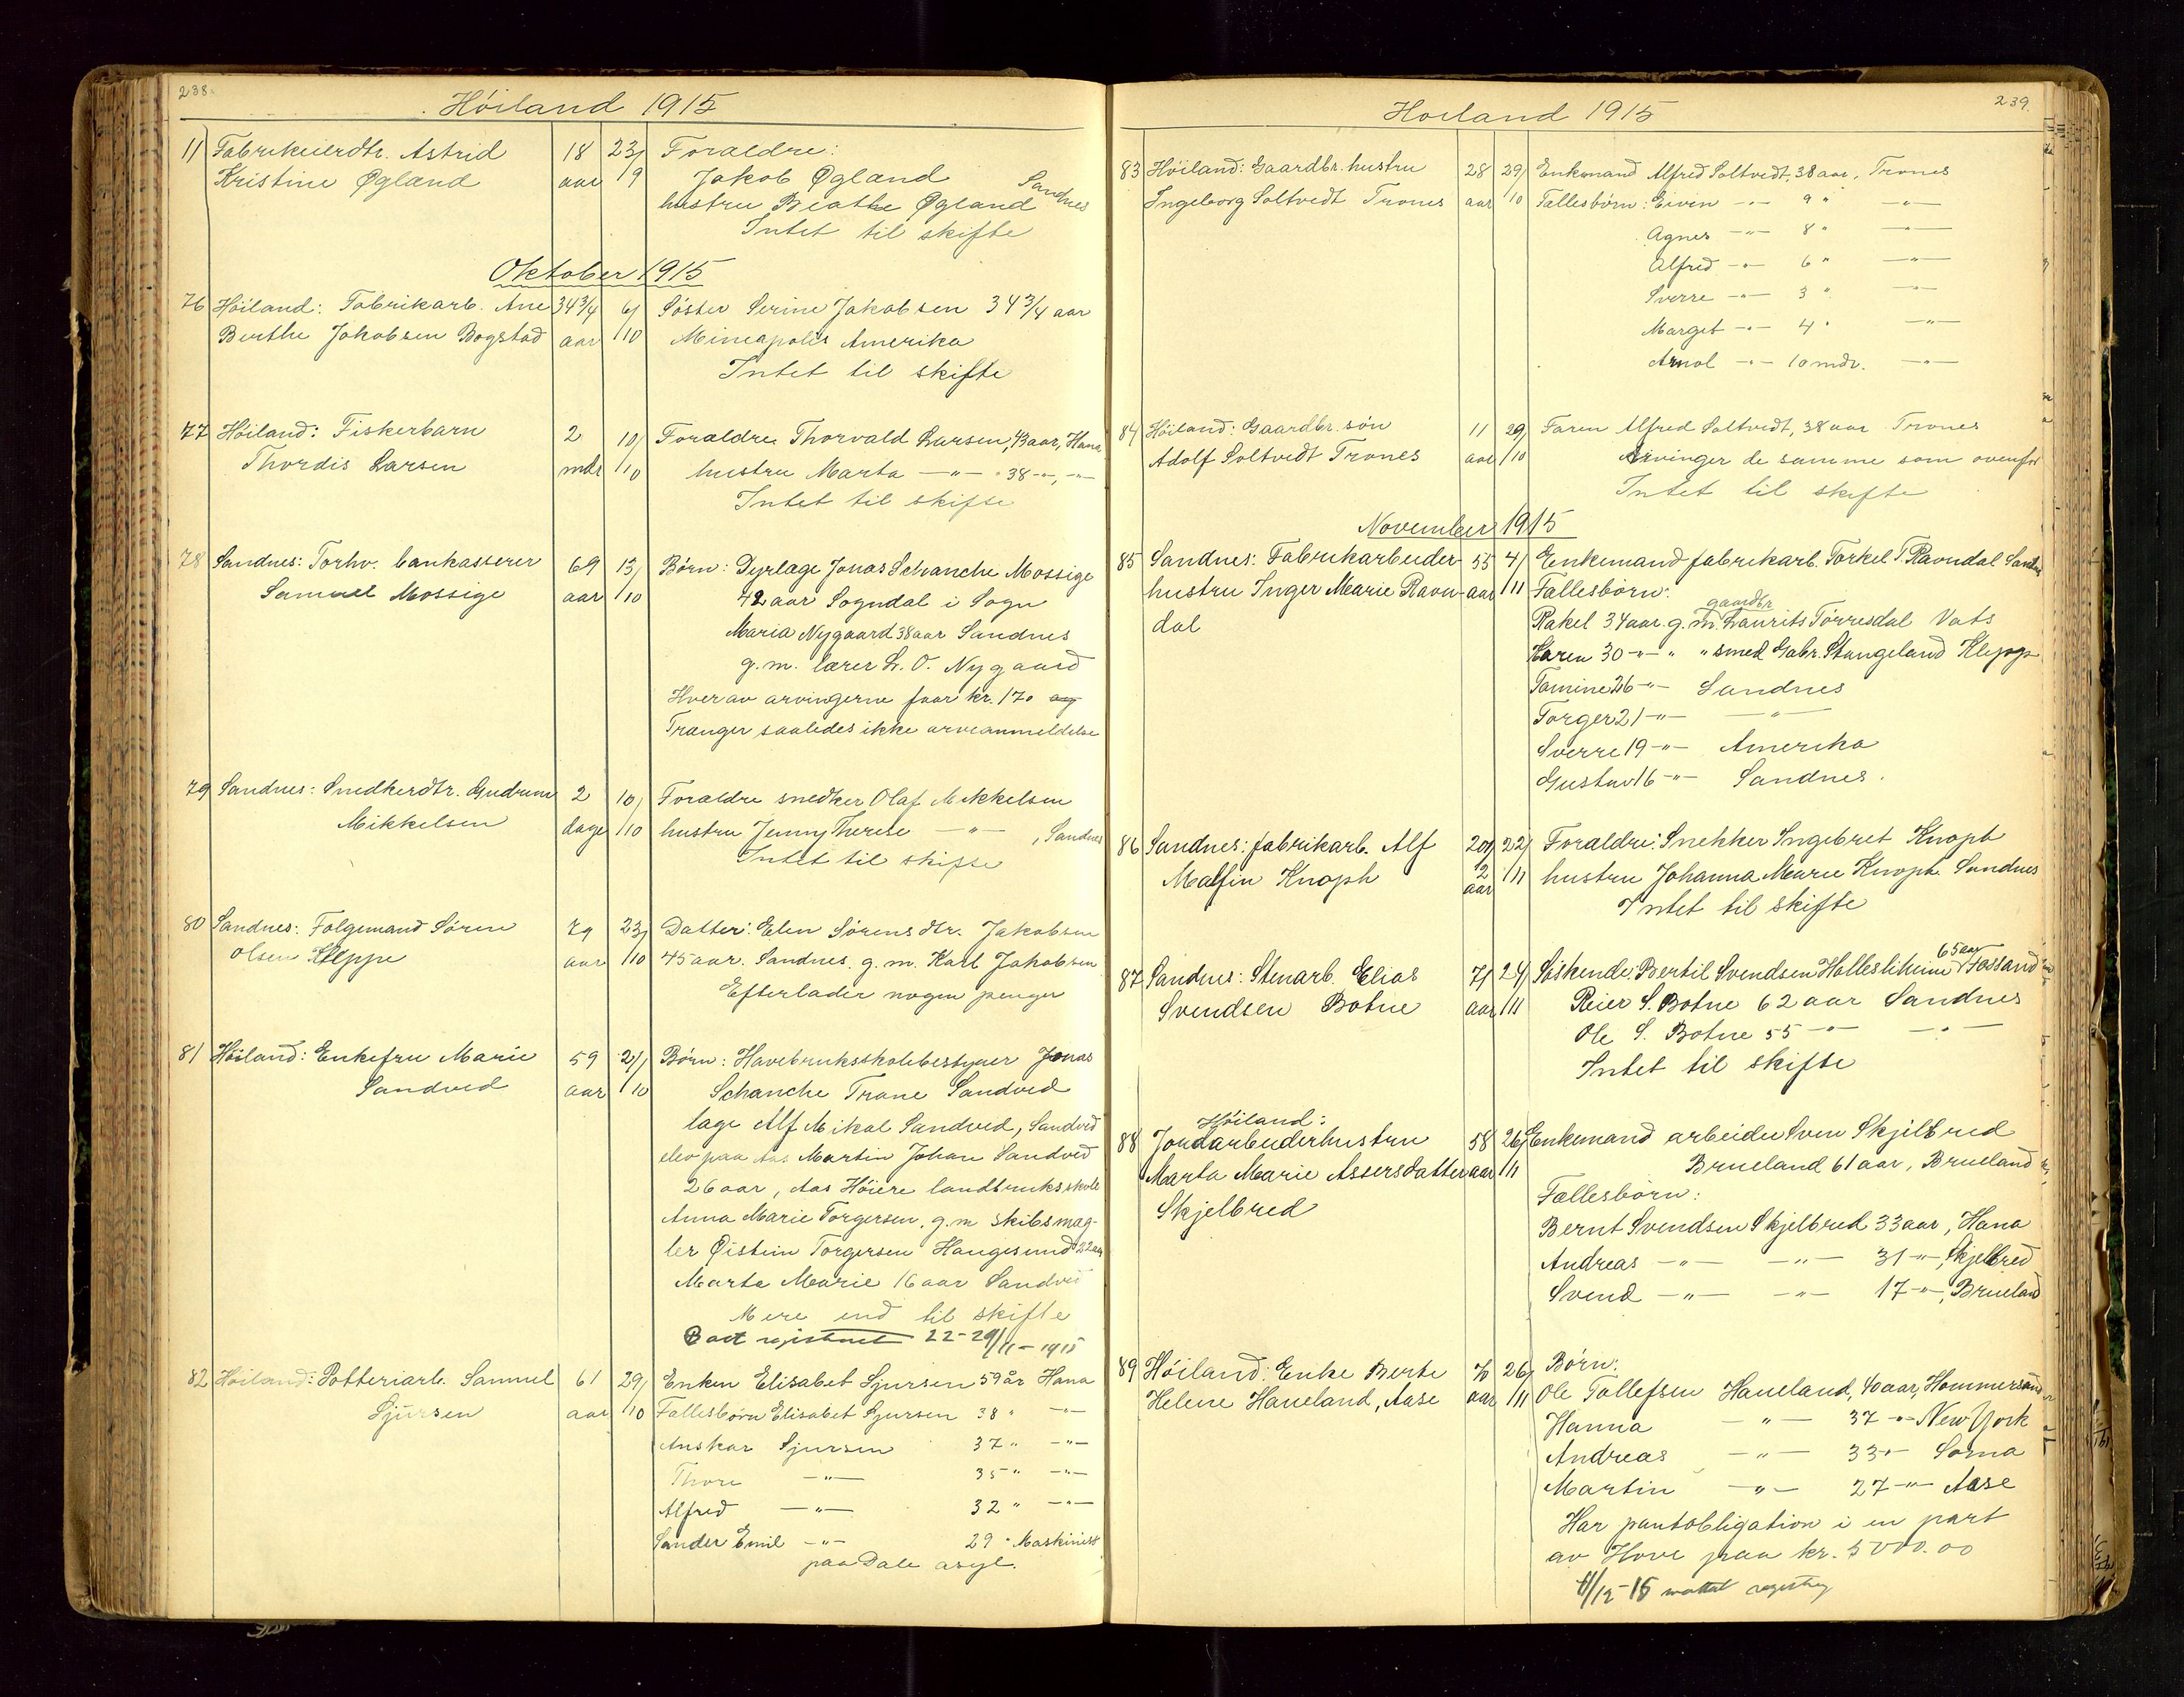 238.
Höiland 1915
11 Fabrikeierdtr. Astrid 18 23/ Forældre:
Kristine Øgland aar /9 Jakob Øgland
hustru Beathe Øgland Sandnes
Intet til skifte
Oktober 1915
76 Höiland: Fabrikarb. Ane 34 3/4 6/ Söster Serine Jakobsen 34 3/4 aar
Berthe Jakobsen Bogstad aar /10 Mineapolis Amerika
Intet til skifte
77 Höiland: Fiskerbarn 2 10/ Forældre Thorvald Larsen, 43 aar, Hana
Thordis Larsen mdr /10 hustru Marta -"- 38 -"-, -"-
Intet til skifte
78 Sandnes: Forhv. bankasserer 69 13/ Børn: Dyrlæge Jonas Schanche Mossige
Samuel Mossige aar /10 42 aar Sogndal i Sogn
Maria Nygaard 38 aar Sandnes
g.m. lærer L. O. Nygaard
Hver av arvingerne faar kr. 170 og
Trænger saaledes ikke arveanmeldelse
79 Sandnes: Snedkerdtr. Gudrun 2 10/ Forældre snedker Olaf Mikkelsen
Mikkelsen dage /10 hustru Jenny Therese -"- , Sandnes
Intet til skifte
80 Sandnes: Følgemand Sören 79 23/ Datter: Elen Sørensdtr. Jakobsen
Olsen Kleppe aar /10 45 aar. Sandnes. g.m. Karl Jakobsen
Efterlader nogen penger
81 Höiland: Enkefru Marie 59 21/ Børn: Havebruksskolebestyrer Jonas
Sandved aar /10 Schanche Trane Sandved
læge Alf Mikal Sandved, Sandved
elev paa Aas Martin Johan Sandved
26 aar, Aas Höiere landbruksskole
Anna Marie Torgersen, g.m skibsmæg-
ler Øistein Torgersen Haugesund 22 aar
Marta Marie 16 aar Sandved
Mere end til skifte
Boet registreret 22-29/11-1915
82 Höiland: Potteriarb. Samuel 61 29/ Enken Elisabet Sjursen 59 år Hana
Sjursen aar /10 Fællesbørn Elisabet Sjursen 38 " -"-
Anskar Sjursen 37 " -"-
Thore -"- 35 " -"-
Alfred -"- 32 " -"-
Sander Emil -"- 29 " Maskinist
paa Dale asyl.
239.
Hoiland 1915
83 Höiland: Gaardbr. hustru 28 29/ Enkemand Alfred Soltvedt, 38 aar, Trones
Ingeborg Soltvedt Trones aar /10 Fællesbörn: Eivin -"- 9 " -"-
Agnes -"- 8 " -"-
Alfred -"- 6 " -"-
Sverre -"- 3 " -"-
Marget -"- 4 " -"-
Arnol -"- 10 mdr. -"-
84 Höiland: Gaardbr. sön 11 29/ Faren Alfred Soltvedt, 38 aar Trones
Adolf Soltvedt Trones aar /10 Arvinger de samme som ovenfor
Intet til skifte
November 1915
85 Sandnes: Fabrikarbeider- 55 4/ Enkemand fabrikarb. Torkel T. Ravndal Sandnes
hustru Inger Marie Ravn- aar /11 Fællesbörn:
dal gaardbr.
Rakel 34 aar g.m. Laurits Törresdal Vats
Karen 30 -"- " " smed Gabr. Stangeland Klepp
Tomine 26 -"- Sandnes
Torger 21 -"- -"-
Sverre 19 -"- Amerika
Gustav 16 -"- Sandnes.
86 Sandnes: fabrikarb. Alf 20 1/2 22/ Forældre: Snekker Ingebret Knoph
Malfin Knoph aar /11 hustru Johanna Marie Knoph. Sandnes
Intet til skifte
87 Sandnes: Stenarb. Elias 71 24/ Söskende: Bertil Svendsen Hallesliheim 65 aar Fossand
Svendsen Botne aar /11 Reier S. Botne 62 aar Sandnes
Ole S. Botne 55 -"- -"-
Intet til skifte
Höiland:
88 Jordarbeiderhustru 58 26/ Enkemand arbeider Sven Skjelbred
Marta Marie Assersdatter aar /11 Brueland 61 aar, Brueland
Skjelbred Fællesbörn:
Bernt Svendsen Skjelbred 33 aar, Hana
Andreas -"- -"- 31 -"-, Skjelbred
Svend -"- -"- 17 -"-, Brueland
89 Höiland: Enke Berte 70 26/ Börn:
Helene Haneland, Aase aar /11 Ole Tollefsen Haneland, 40 aar, Hommersand
Hanna -"- 37 -"- New York
Andreas -"- 33 -"- Soma
Martin -"- 27 -"- Aase
Har pantobligation i en part
av Hove paa kr. 5000.00
4/12-15